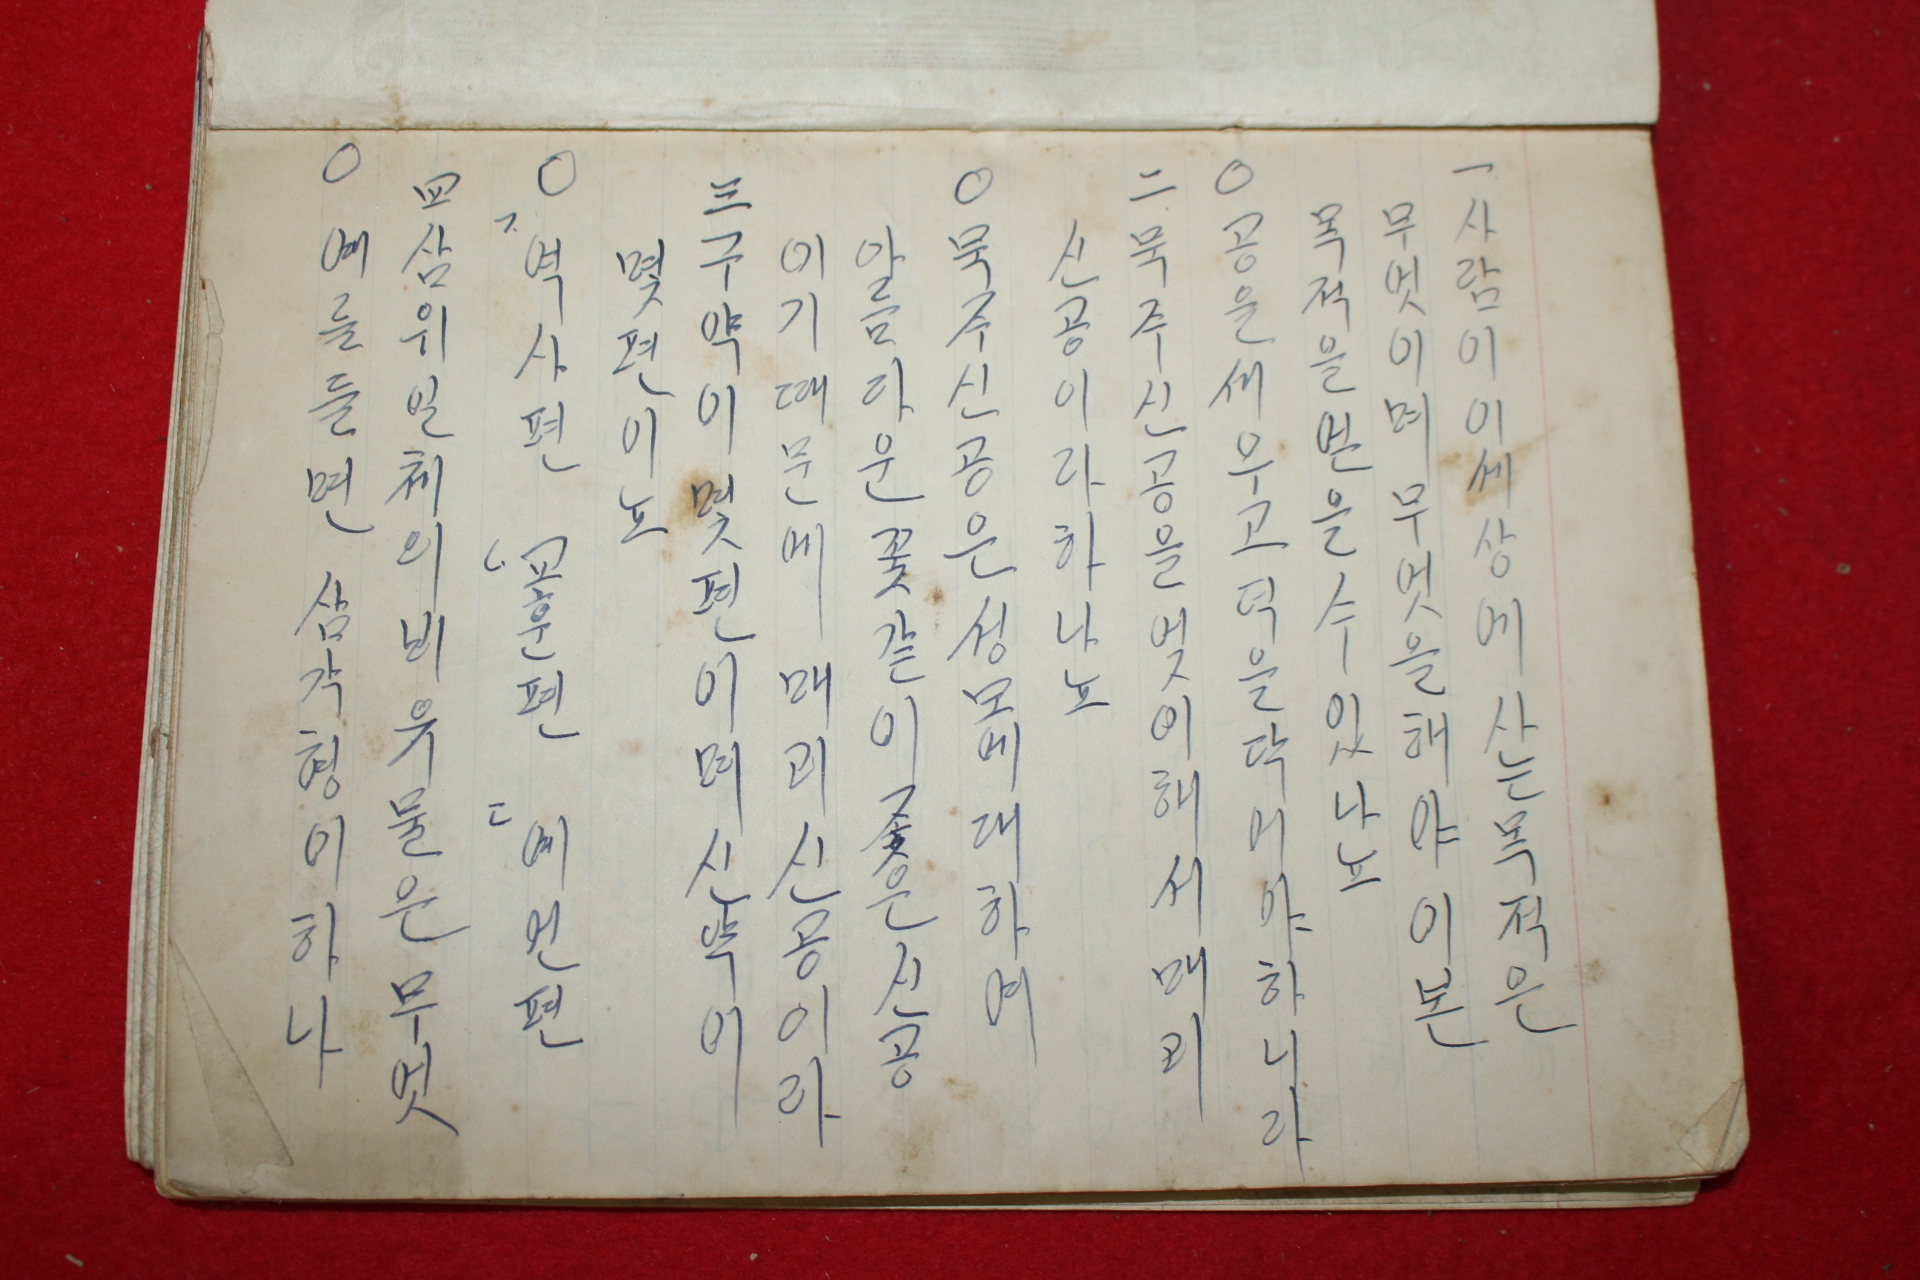 一 사람이 이 세상에 사는 목적은
무엇이며 무엇을 해야 이 본
목적을 얻을 수 있나뇨
○ 공을 세우고 덕을 닦어야 하니라
二 묵주신공을 엊이해서 매괴
신공이라 하나뇨
○ 묵주신공은 성모에 대하여
알름다운 꽃같이 좋은 신공
이기 때문에 매괴신공이라
三 구약이 몇편이며 신약이
몇편이뇨
○ ㄱ. 역사편 ㄴ. 교훈편 ㄷ 예언편
四 삼위일체의 비유물은 무엇
○ 예를 들면 삼각형이 하나